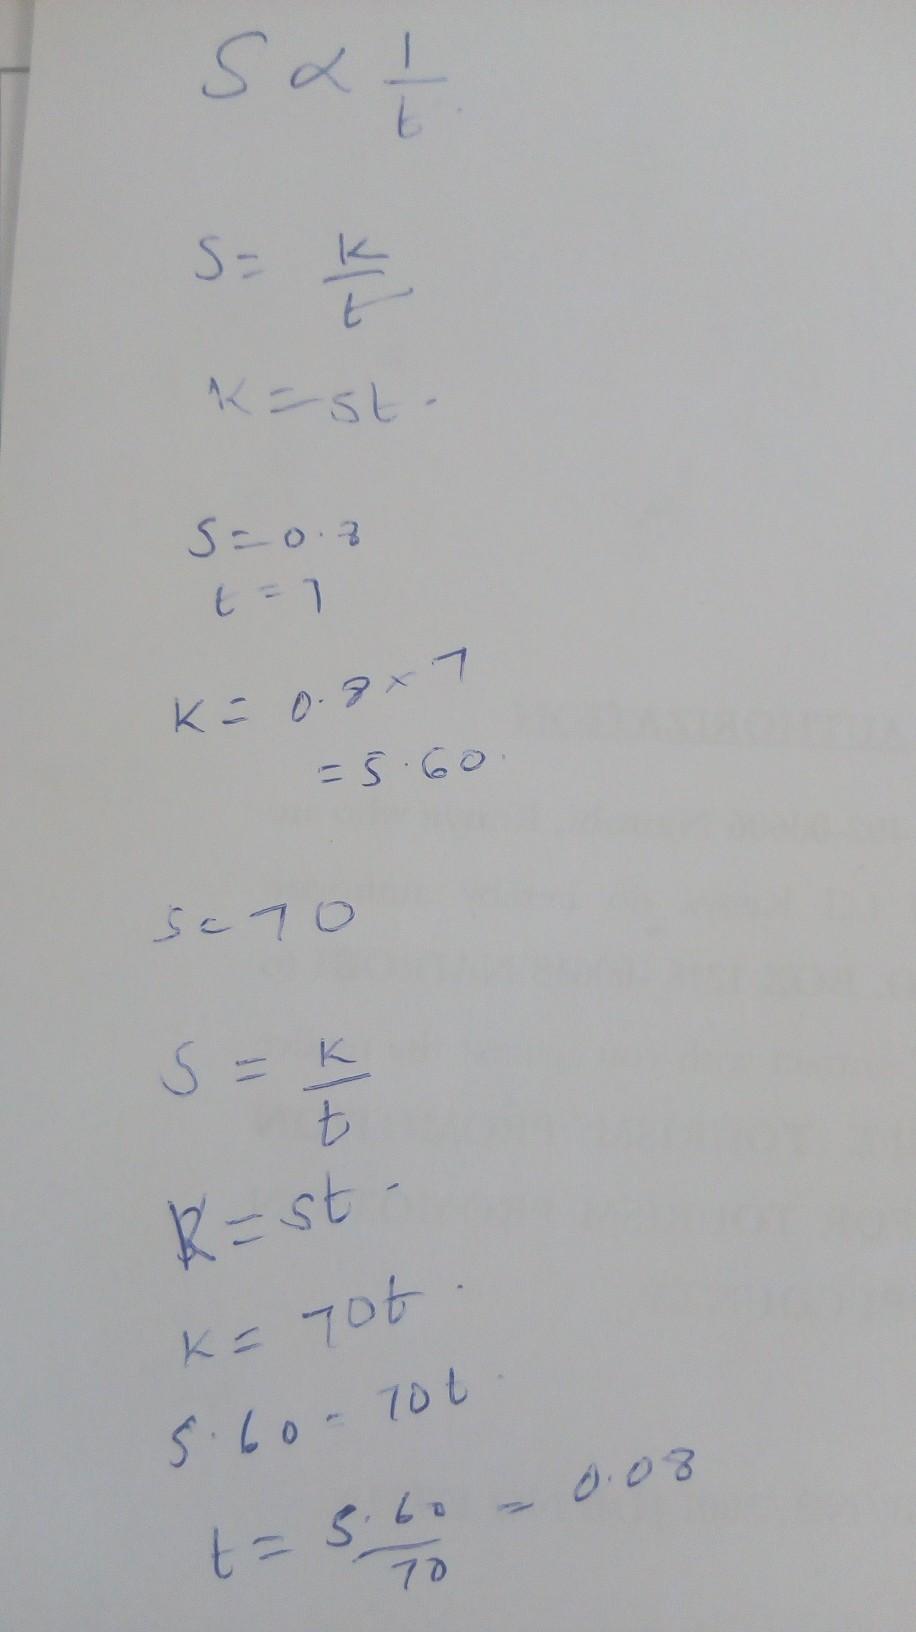 S ∝ 1/t
S = K/t
K = st.
S = 0.8
t = 7
K = 0.8 × 7
= 5.60.
S = 70
S = K/t
K = st
K = 70t.
5.60 = 70t.
t = 5.60/70 = 0.08